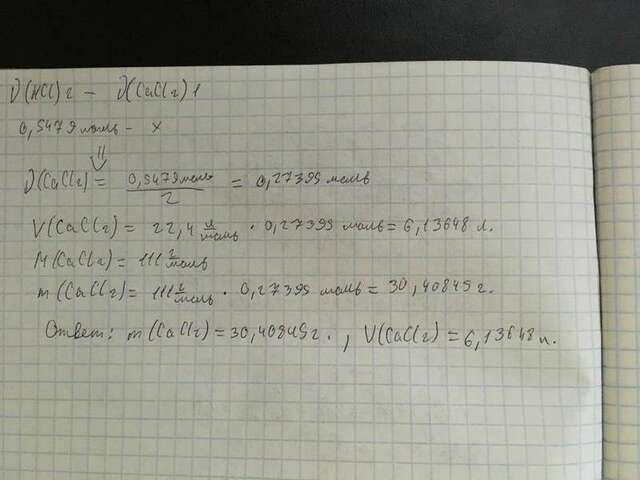 ν(HCl) 2 - ν(CaCl2) 1
0,5479 моль - x
⇓
ν(CaCl2) = 0,5479 моль / 2 = 0,27395 моль
V(CaCl2) = 22,4 л/моль · 0,27395 моль = 6,13648 л.
M(CaCl2) = 111 г/моль
m(CaCl2) = 111 г/моль · 0,27395 моль = 30,40845 г.
Ответ: m(CaCl2) = 30,40845 г., V(CaCl2) = 6,13648 л.